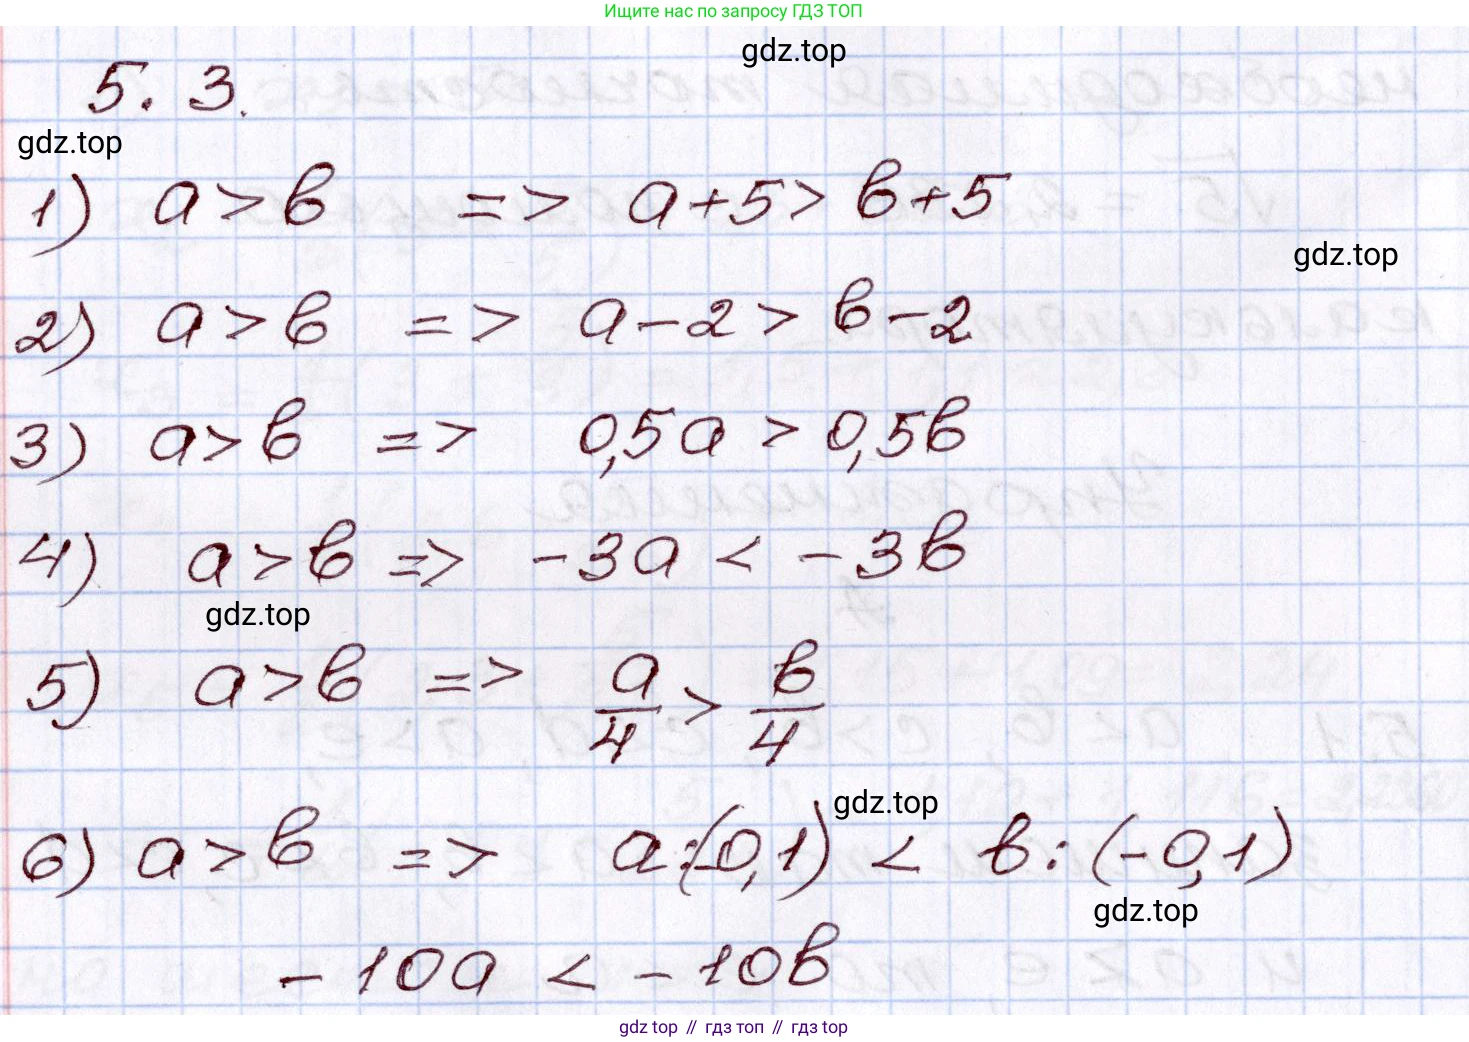 Ищите нас по запросу ГДЗ ТОП
gdz.top
5.3.
gdz.top
1) a > b => a+5 > b+5
gdz.top
2) a > b => a-2 > b-2
3) a > b => 0,5a > 0,5b
4) a > b => -3a < -3b
gdz.top
5) a > b => a/4 > b/4
gdz.top
6) a > b => a:(-0,1) < b:(-0,1)
gdz.top
-10a < -10b
gdz top // гдз топ // гдз top